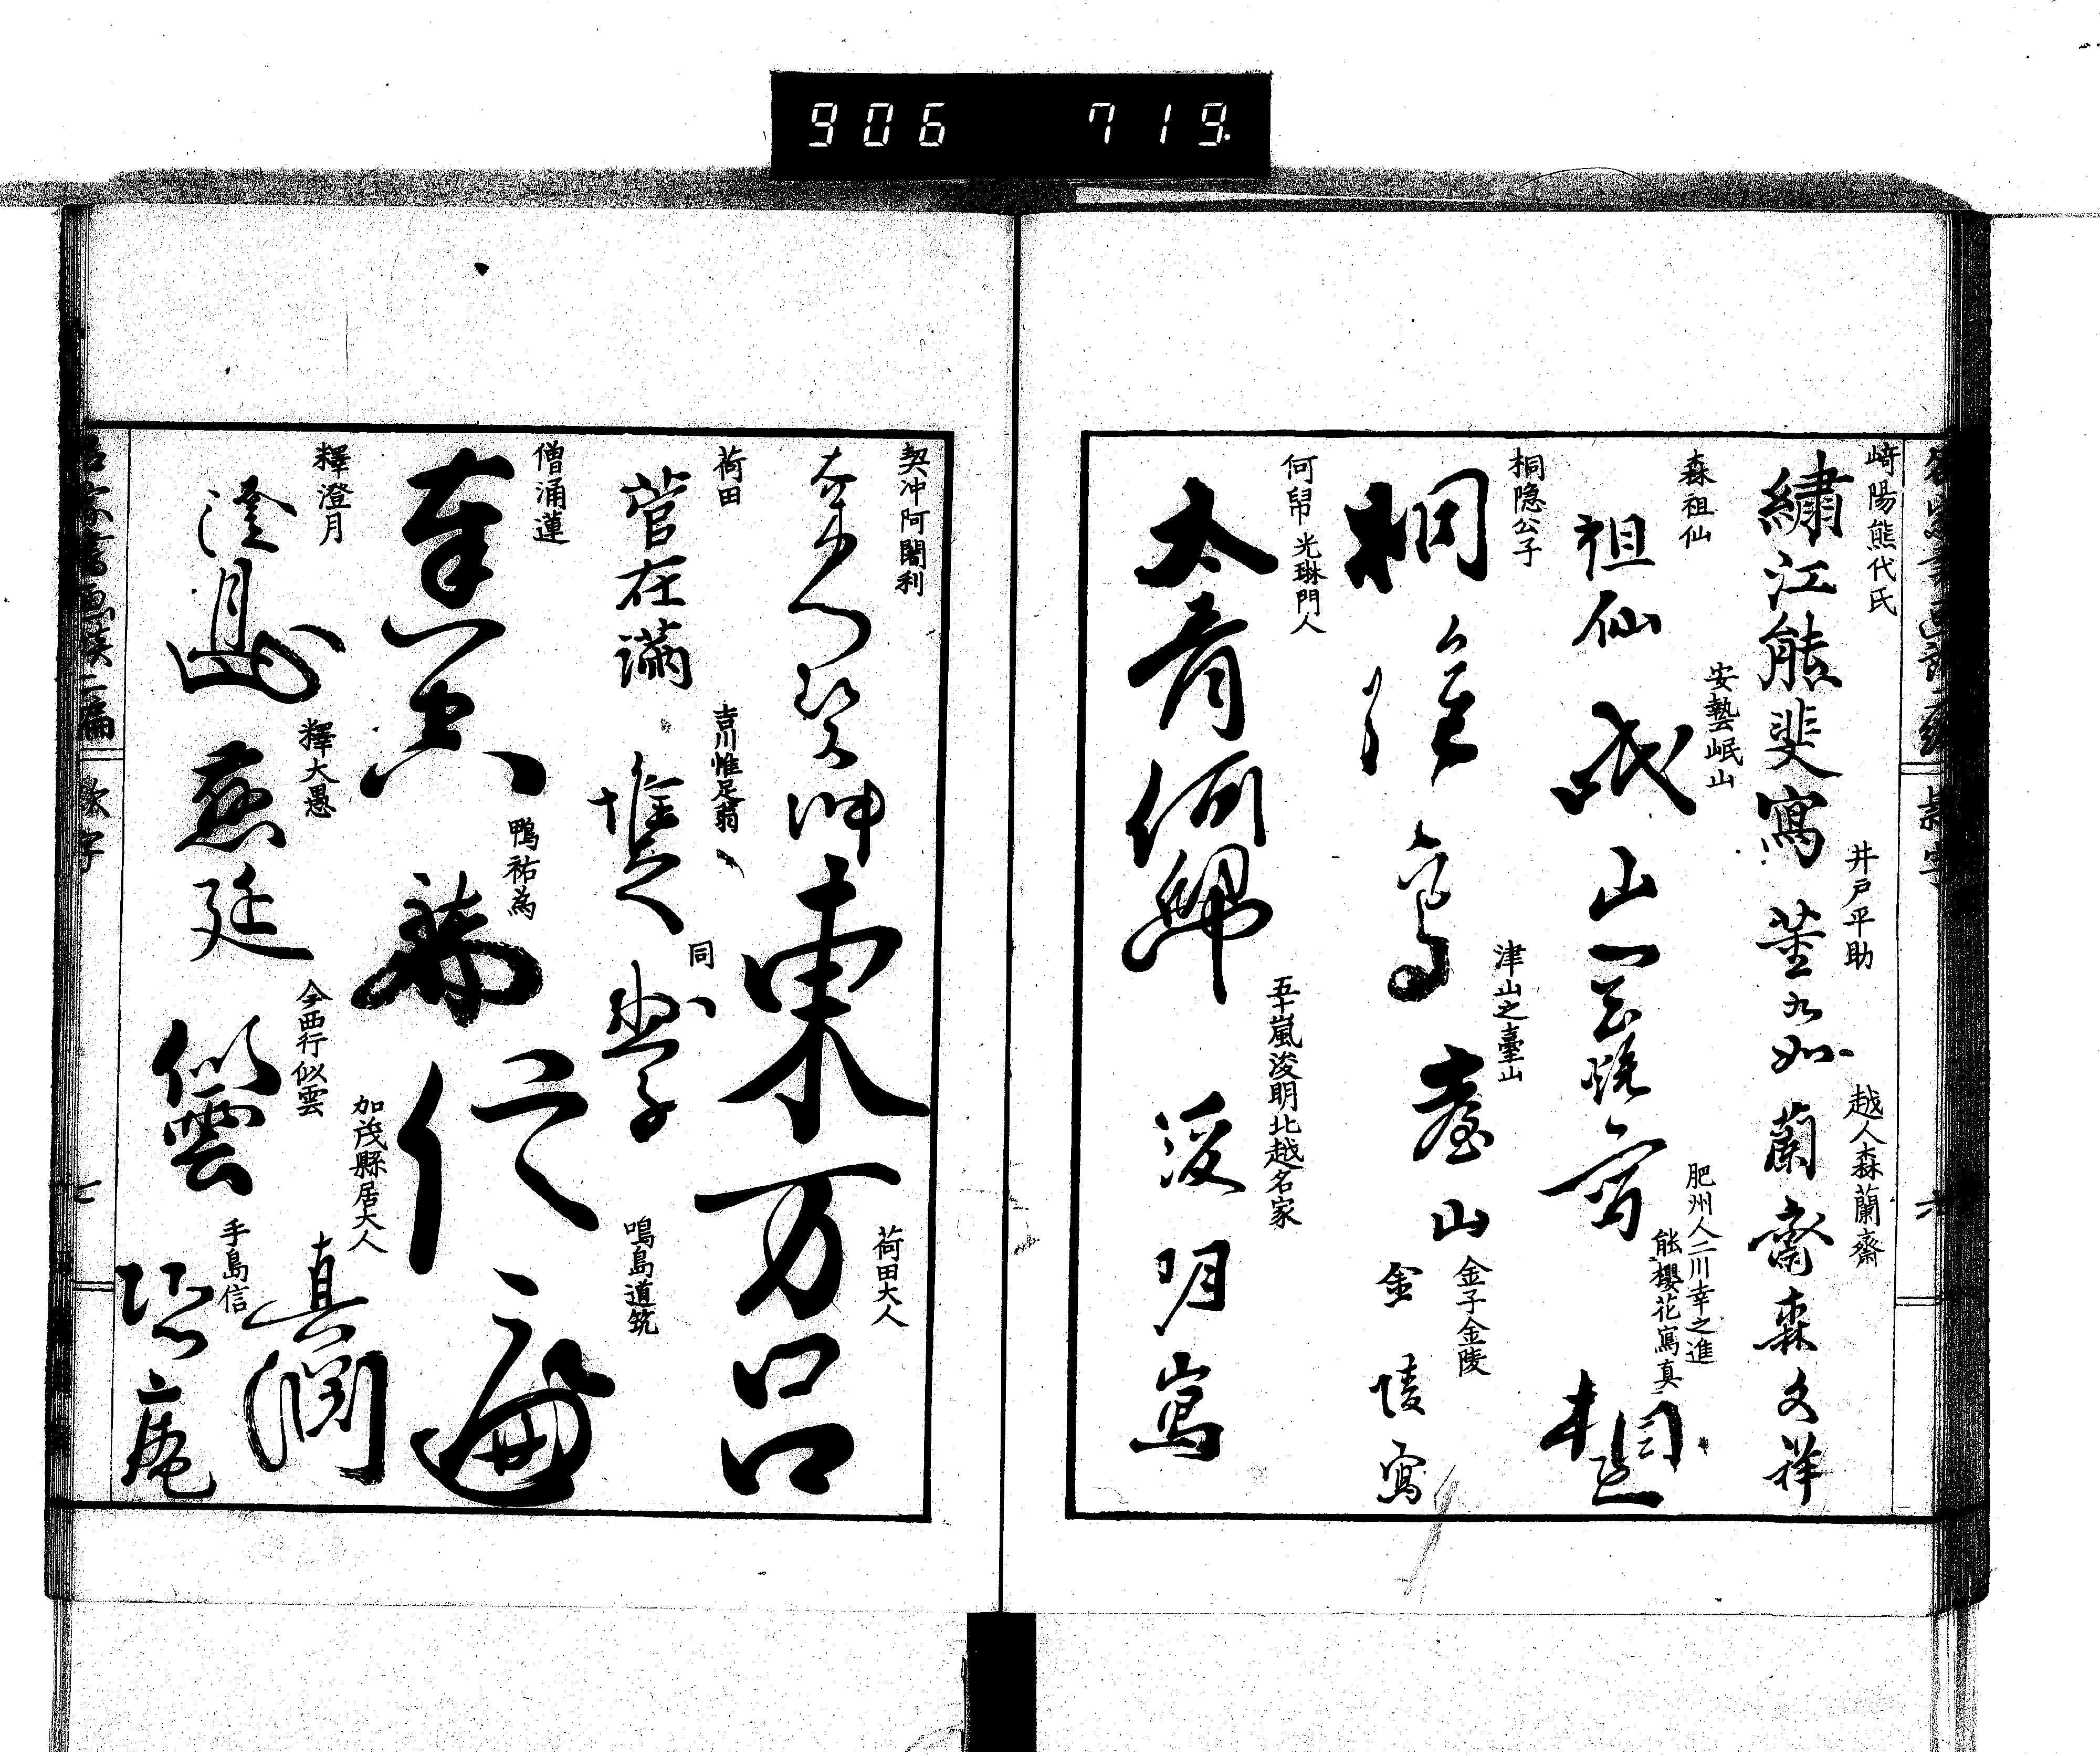 906 719
崎陽熊代氏
繡江熊斐寫
井戸平助
董九如
越人森蘭齋
蘭齋森文祥
森祖仙
祖仙
安藝岷山
岷山
寫
肥州人二川幸之進
能櫻花寫真
相
桐隠公子
桐隠
寫
津山之臺山
臺山
金子金陵
金陵寫
何帠 光琳門人
太青何帠
五十嵐浚明北越名家
浚明寫
契冲阿闍利
契冲
荷田大人
東万呂
荷田
菅在滿
吉川惟足翁
惟足
同
僧涌蓮
鴨祐為
祐為
鳴島道筑
信遍
釋澄月
澄月
釋大愚
慈延
今西行似雲
似雲
加茂縣居大人
真淵
手島信
堵庵
名家書画談二編
款字
七